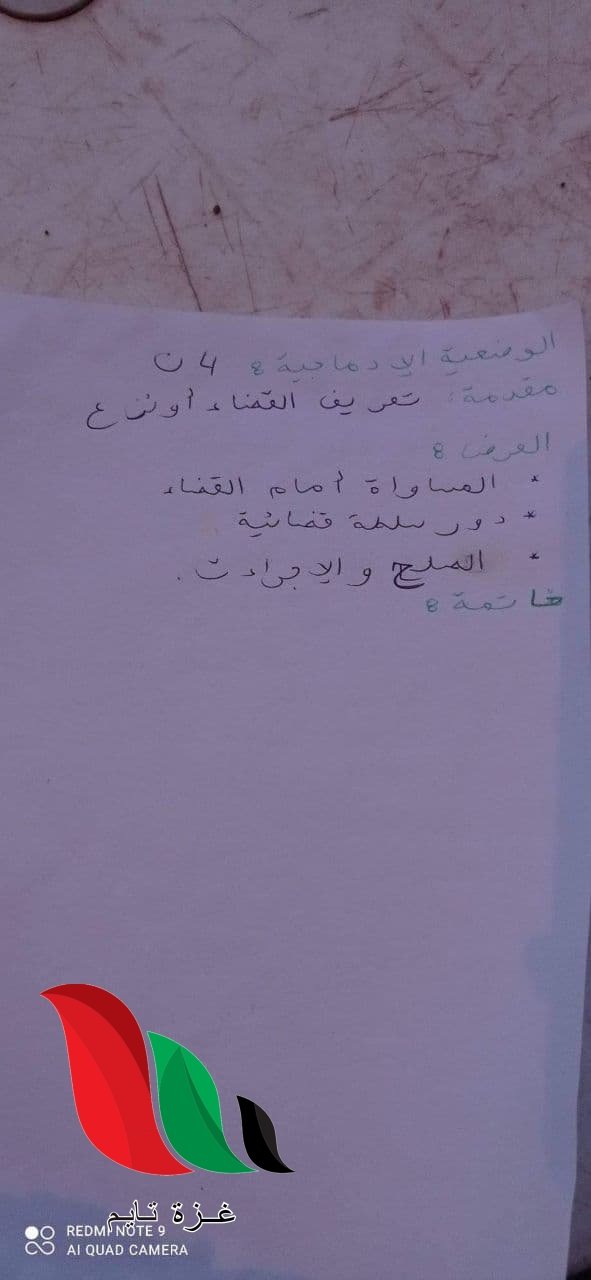 الوضعية الإدماجية 8 4 ن
مقدمة: تعريف القضاء أو نزع
العرض 8
* المساواة أمام القضاء
* دور سلطة قضائية
* الصلح والإجراءت.
خاتمة 8
غزة تايم
REDMI NOTE 9
AI QUAD CAMERA